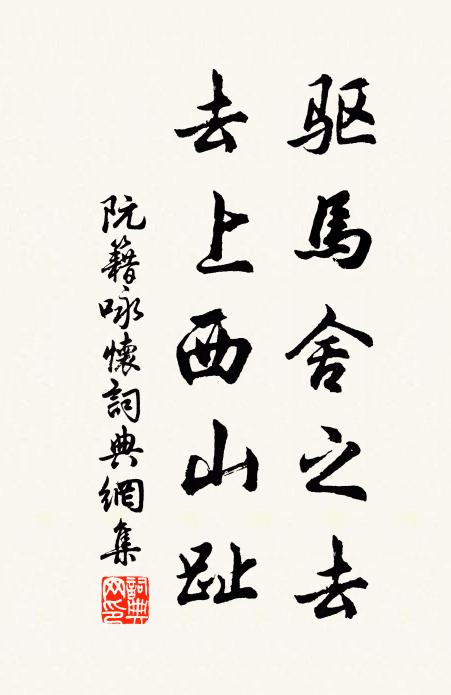 驱馬舍之去
去上西山趾
阮籍咏懷詞典網集
詞典网印